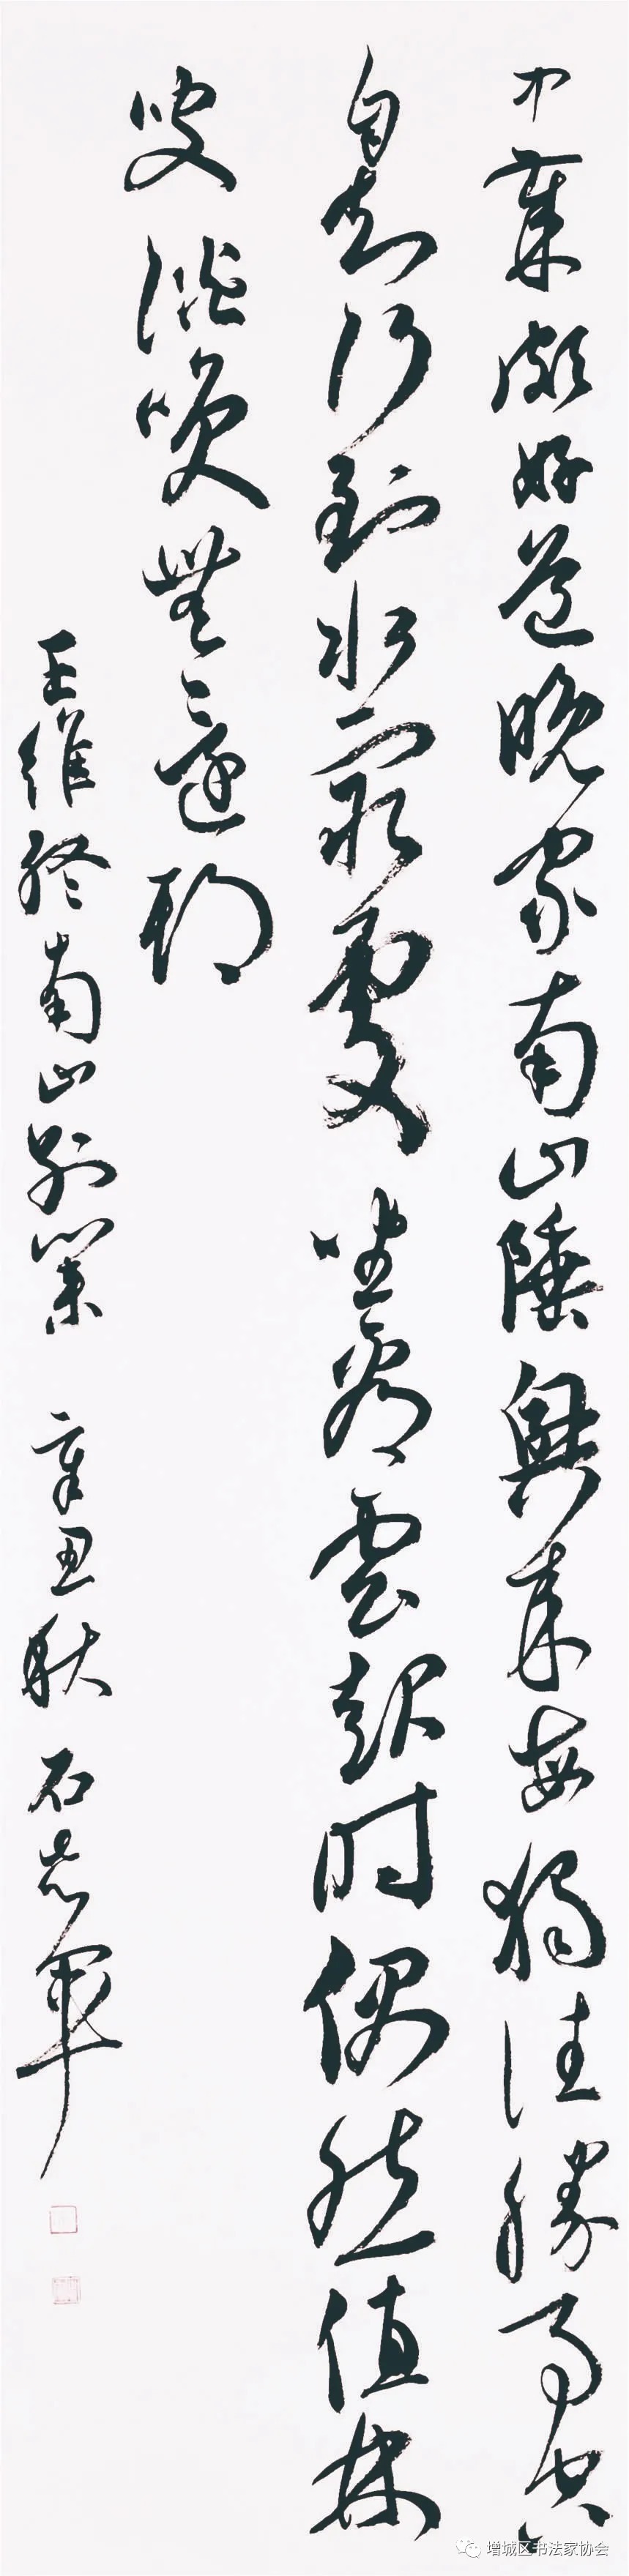 中歲頗好道晚家南山陲興來每獨往勝事空
自知行到水窮處坐看雲起時偶然值林
叟談笑無還期
王維終南山別業 辛丑秋 石志軍
增城区书法家协会